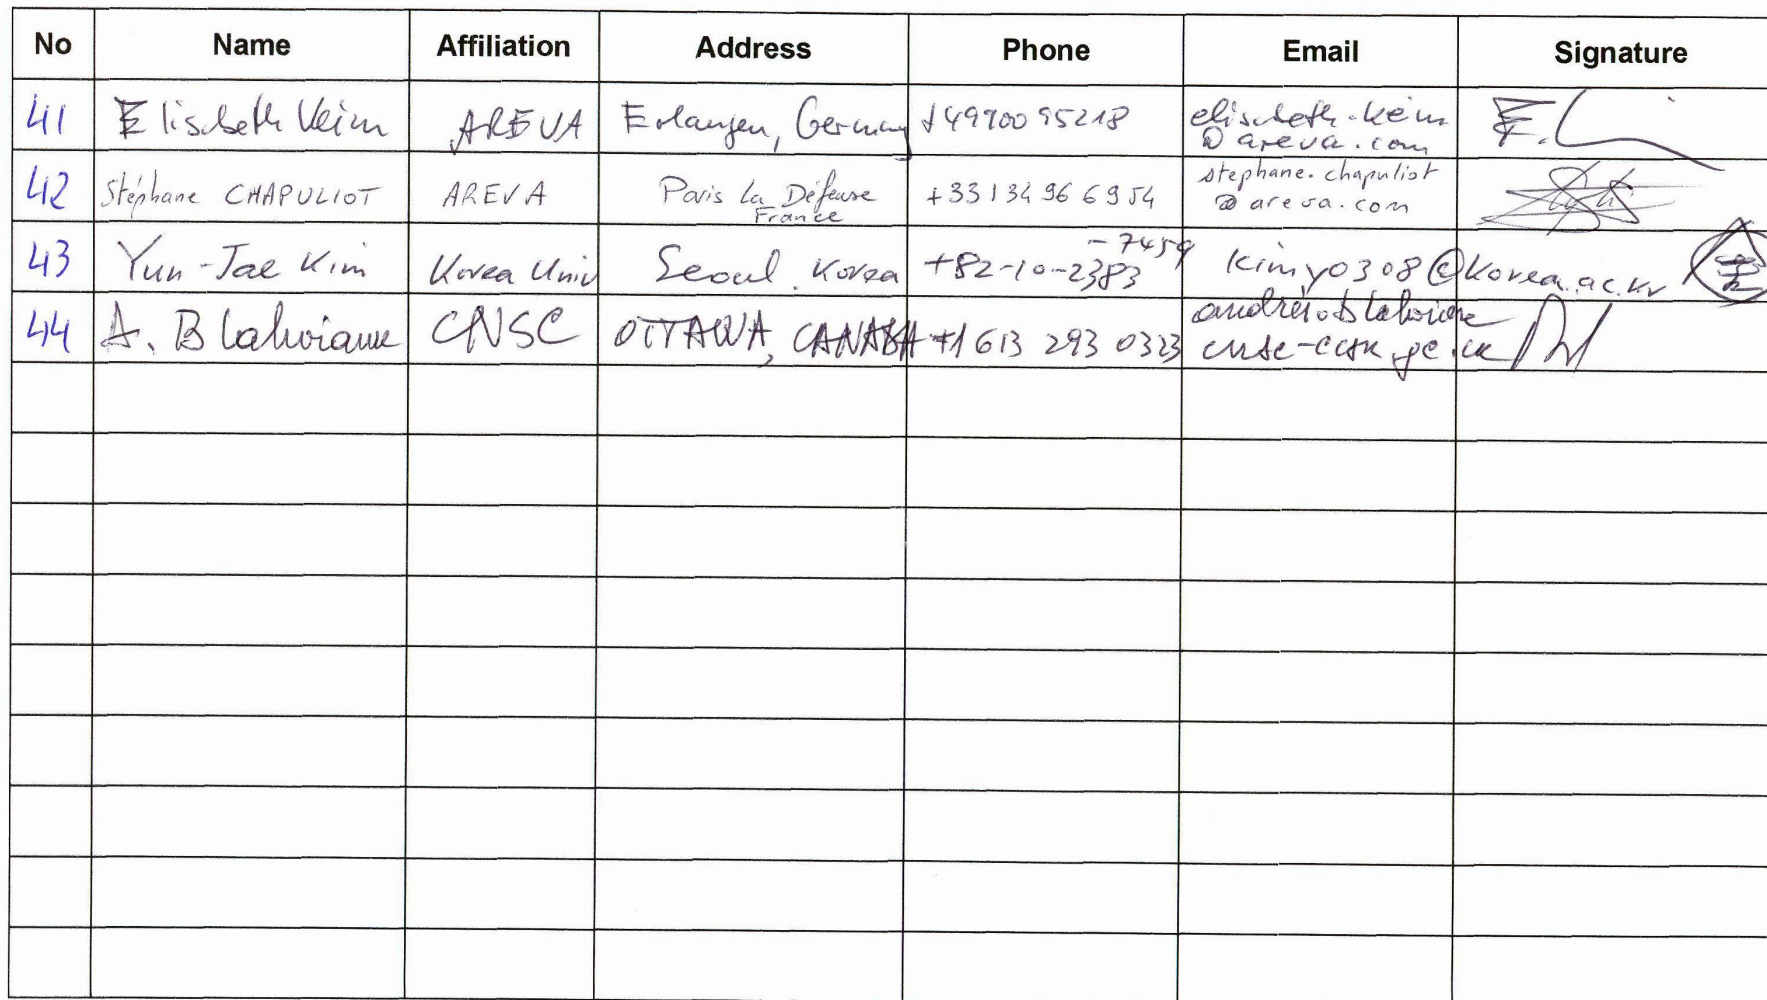 No Name Affiliation Address Phone Email Signature
41 Elisabeth Keim AREVA Erlangen, Germany +499100 95218 elisabeth.keim
@areva.com
42 Stéphane CHAPULIOT AREVA Paris La Défense +33 1 34 96 6954 stephane.chapuliot
France @areva.com
43 Yun-Jae Kim Korea Univ Seoul. Korea +82-10-2383 -7459 kimy0308@korea.ac.kr
44 A. Blahoianu CNSC OTTAWA, CANADA +1 613 293 0323